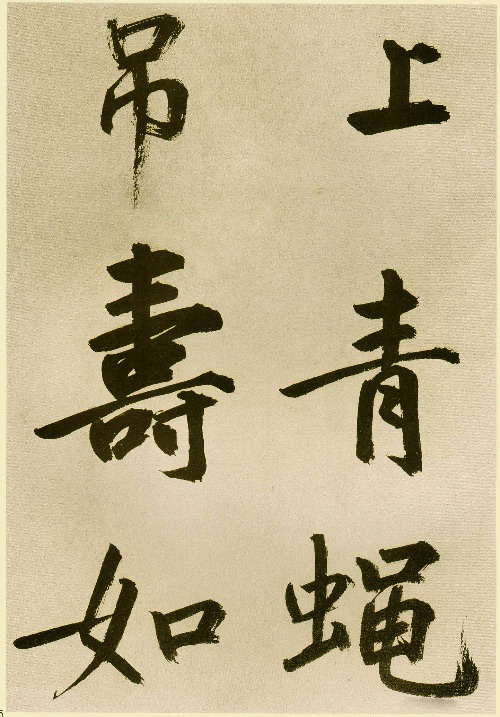 上青蝇
吊壽如